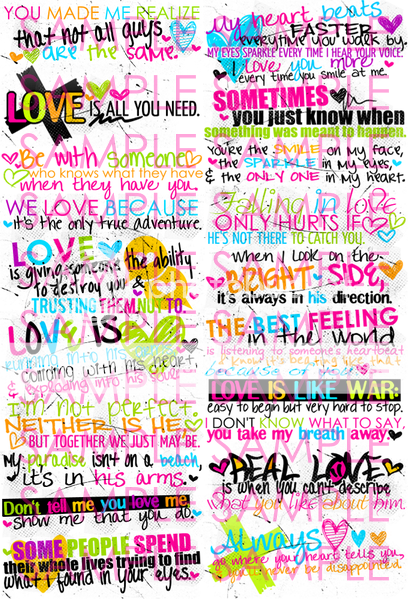 YOU MADE ME REALIZE
that not all guys
are the same.
LOVE IS ALL YOU NEED.
Be with someone
who knows what they have
when they have you.
WE LOVE BECAUSE
it's the only true adventure.
LOVE
is giving someone the ability
to destroy you &
TRUSTING THEM NOT TO.
LOVE IS
running into his
colliding with his heart,
& exploding into his soul
i'm not perfect.
NEITHER IS HE.
BUT TOGETHER WE JUST MAY BE.
My paradise isn't on a beach,
it's in his arms.
Don't tell me you love me,
show me that you do.
SOME PEOPLE SPEND
their whole lives trying to find
what I found in your eyes.
My heart beats
FASTER
everytime you walk by.
MY EYES SPARKLE EVERY TIME I HEAR YOUR VOICE.
I love you more
every time you smile at me.
SOMETIMES
you just know when
something was meant to happen.
You're the SMILE on my face,
the SPARKLE in my eyes,
& the ONLY ONE in my heart.
Falling in love
ONLY HURTS IF
HE'S NOT THERE TO CATCH YOU.
when I look on the
BRIGHT SIDE,
it's always in his direction.
THE BEST FEELING
in the world
is listening to someone's heartbeat
& know it's beating like that
because of you.
LOVE IS LIKE WAR:
easy to begin but very hard to stop.
I DON'T KNOW WHAT TO SAY,
you take my breath away.
REAL LOVE
is when you can't describe
what you like about him
Always
go where your heart tells you,
you'll never be disappointed.
SAMPLE